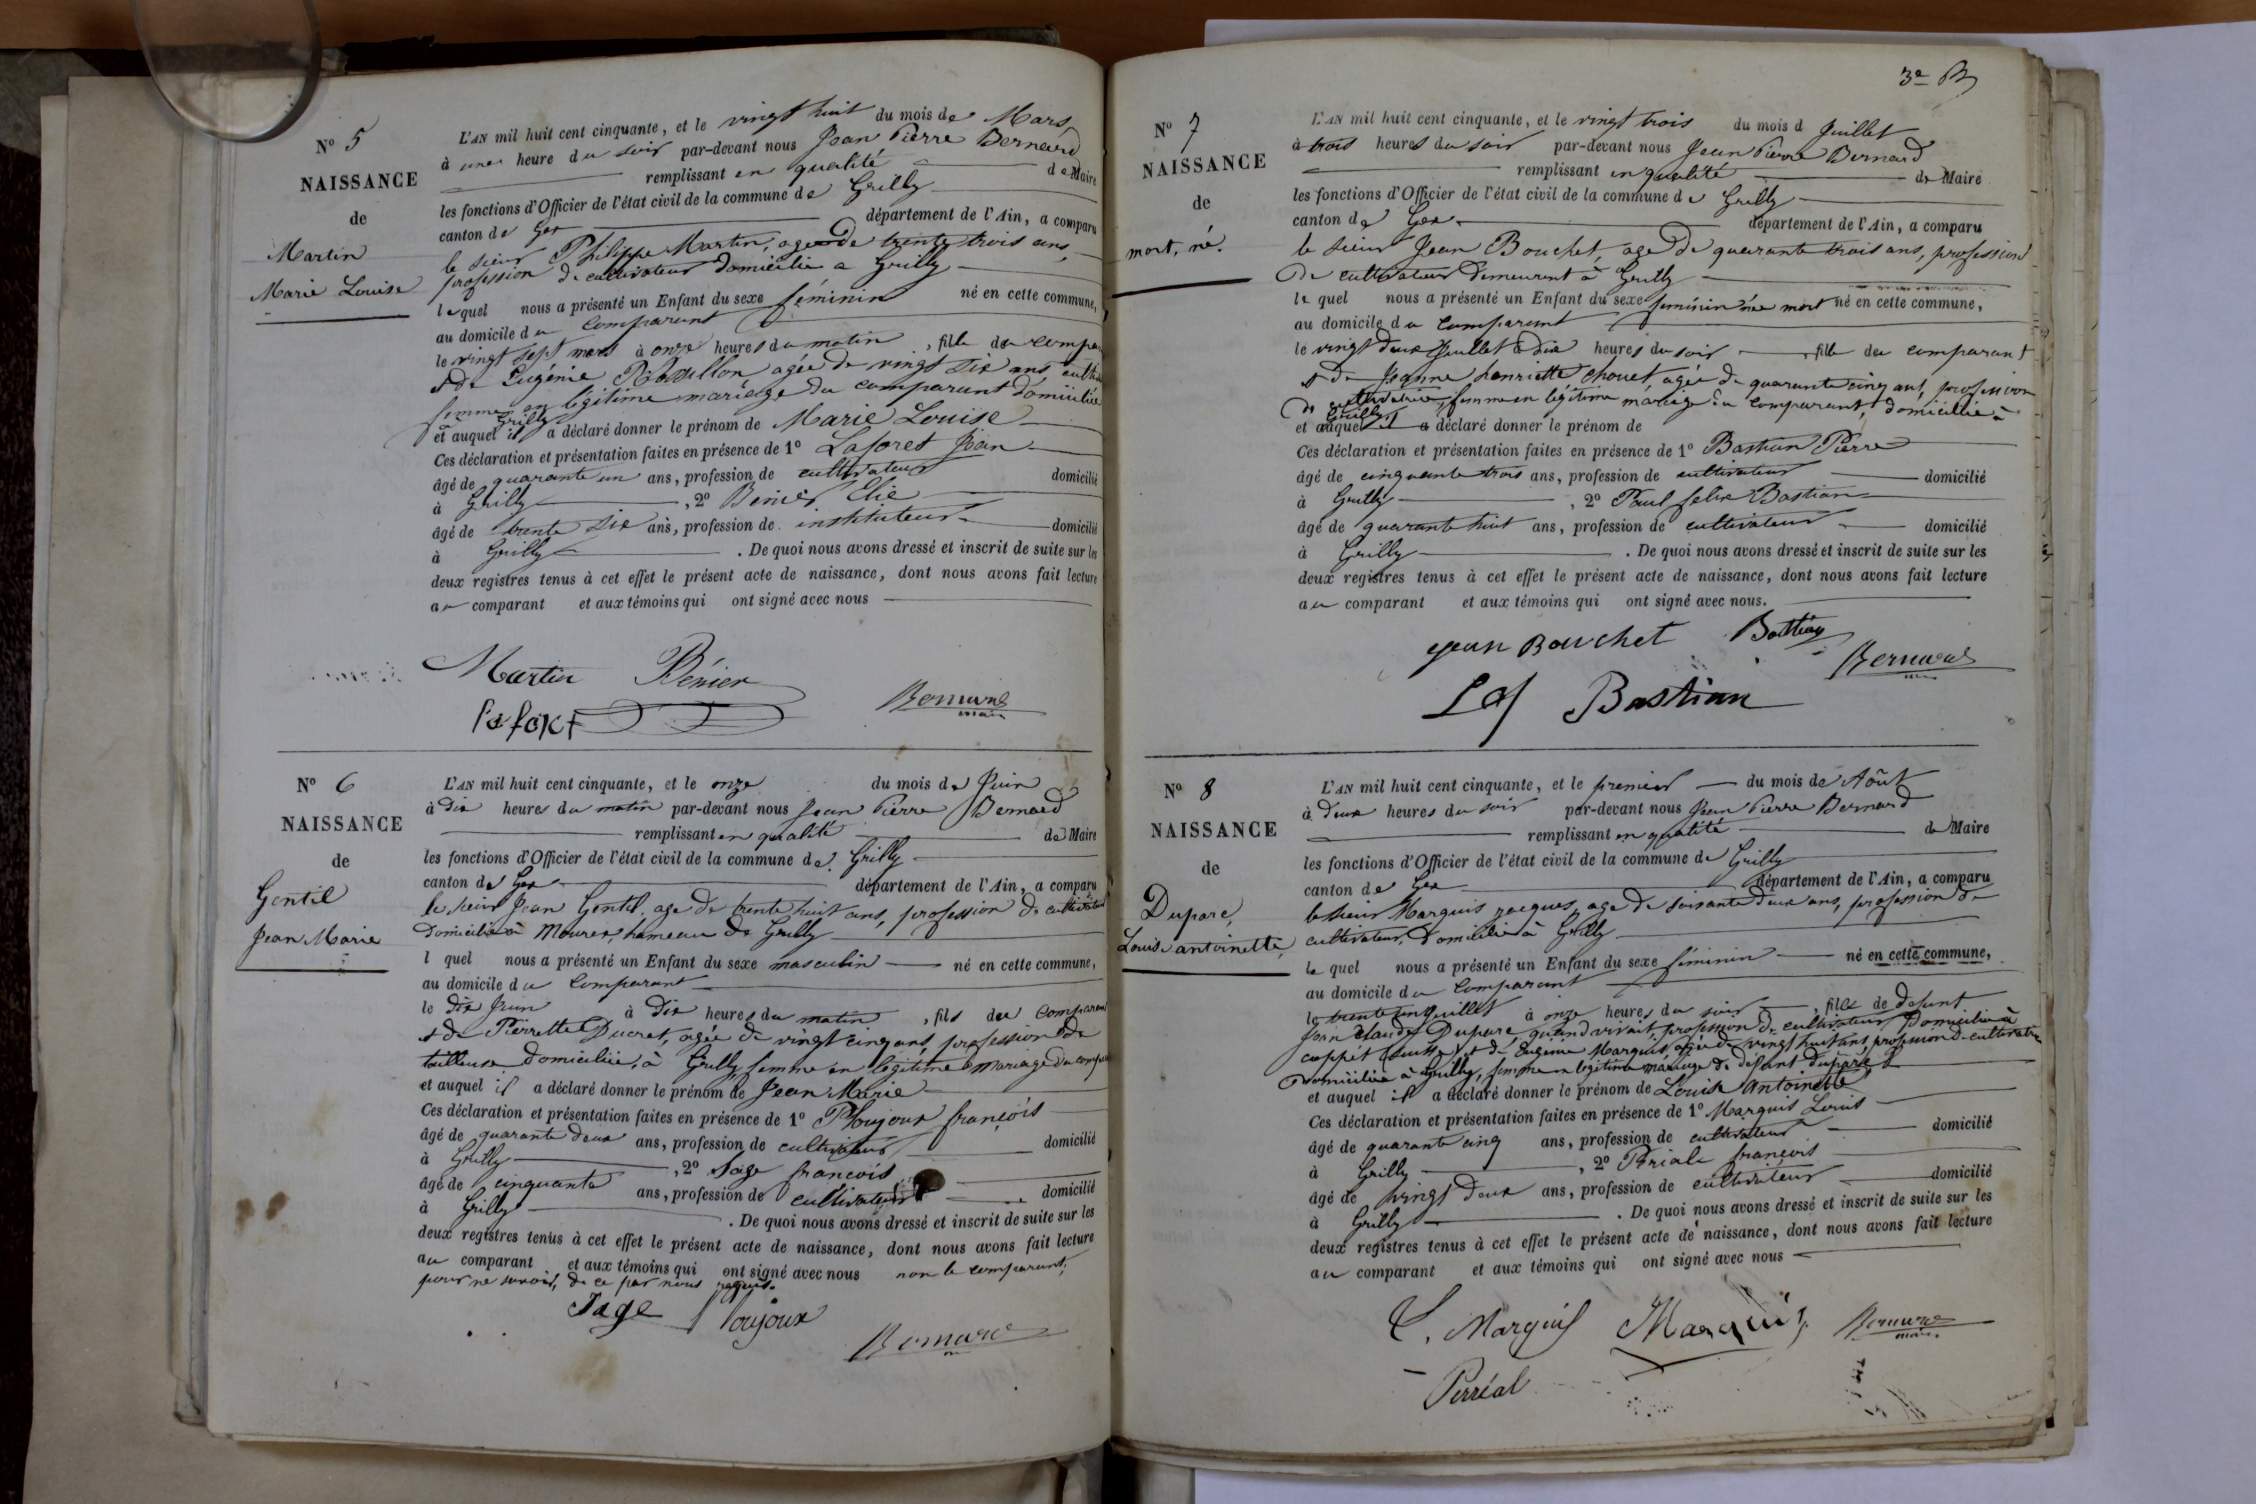 Nº 5
NAISSANCE
de
Martin
Marie Louise
L'AN mil huit cent cinquante, et le vingt huit du mois de Mars,
à une heure du soir par-devant nous Jean Pierre Bernard
remplissant en qualité de Maire
les fonctions d'Officier de l'état civil de la commune de Grilly
canton de Gex département de l'Ain, a comparu
le sieur Philippe Martin, age de trente trois ans,
profession de cultivateur domicilié a Grilly
lequel nous a présenté un Enfant du sexe féminin né en cette commune,
au domicile du comparant
le vingt sept mars à onze heures du matin, fille du compa
et de Eugénie agée de vingt six ans
femme en légitime mariage du comparant domiciliée
à Grilly
et auquel il a déclaré donner le prénom de Marie Louise
Ces déclaration et présentation faites en présence de 1º Laforet Jean
âgé de quarante un ans, profession de cultivateur domicilié
à Grilly, 2º Benier Elie
âgé de trente six ans, profession de instituteur domicilié
à Grilly. De quoi nous avons dressé et inscrit de suite sur les
deux registres tenus à cet effet le présent acte de naissance, dont nous avons fait lecture
au comparant et aux témoins qui ont signé avec nous
Martin Bénier
Laforet Bernard
maire
Nº 6
NAISSANCE
de
Gentil
Jean Marie
L'AN mil huit cent cinquante, et le onze du mois de Juin
à dix heures du matin par-devant nous Jean Pierre Bernard
remplissant en qualité de Maire
les fonctions d'Officier de l'état civil de la commune de Grilly
canton de Gex département de l'Ain, a comparu
le sieur Jean Gentil, age de trente huit ans, profession de cultivateur
domicilié à Mourex, hameau de Grilly
l quel nous a présenté un Enfant du sexe masculin né en cette commune,
au domicile du comparant
le dix Juin à dix heures du matin, fils du comparant
et de Pierrette Ducret, agée de vingt cinq ans, profession de
tailleuse domiciliée, à Grilly, femme en légitime mariage du comp
et auquel il a déclaré donner le prénom de Jean Marie
Ces déclaration et présentation faites en présence de 1º Ploujoux françois
âgé de quarante deux ans, profession de cultivateur domicilié
à Grilly, 2º Sage francois
âgé de cinquante ans, profession de cultivateur domicilié
à Grilly. De quoi nous avons dressé et inscrit de suite sur les
deux registres tenus à cet effet le présent acte de naissance, dont nous avons fait lecture
au comparant et aux témoins qui ont signé avec nous non le comparant,
pour ne savoir, de ce par nous requis.
Sage Ploujoux
Bernard
3e
Nº 7
NAISSANCE
de
mort, né.
L'AN mil huit cent cinquante, et le vingt trois du mois d Juillet
à trois heures du soir par-devant nous Jean Pierre Bernard
remplissant en qualité de Maire
les fonctions d'Officier de l'état civil de la commune de Grilly
canton de Gex département de l'Ain, a comparu
le sieur Jean Bouchet, age de quarante trois ans, profession
de cultivateur demeurant à Grilly
le quel nous a présenté un Enfant du sexe féminin née mort né en cette commune,
au domicile du comparant
le vingt deux Juillet à dix heures du soir, fille du comparant
et de Jeanne henriette Chouet, agée de quarante cinq ans, profession
de cultivatrice, femme en légitime mariage du comparant, domiciliée à
Grilly
et auquel il a déclaré donner le prénom de
Ces déclaration et présentation faites en présence de 1º Bastian Pierre
âgé de cinquante trois ans, profession de cultivateur domicilié
à Grilly, 2º Paul felix Bastian
âgé de quarante huit ans, profession de cultivateur domicilié
à Grilly. De quoi nous avons dressé et inscrit de suite sur les
deux registres tenus à cet effet le présent acte de naissance, dont nous avons fait lecture
au comparant et aux témoins qui ont signé avec nous.
jean Bouchet Bastian
Bernard
Bastian
Nº 8
NAISSANCE
de
Duparc,
Louise antoinette,
L'AN mil huit cent cinquante, et le premier du mois de Août
à deux heures du soir par-devant nous Jean Pierre Bernard
remplissant en qualité de Maire
les fonctions d'Officier de l'état civil de la commune de Grilly
canton de Gex département de l'Ain, a comparu
le sieur Marquis jacques, age de soixante deux ans, profession de
cultivateur, domicilié à Grilly
le quel nous a présenté un Enfant du sexe féminin né en cette commune,
au domicile du comparant
le trente un Juillet à onze heures du soir, fille de defunt
Jean Claude Duparc quand vivait profession de cultivateur domicilié à
coppet (suisse) et de Eugénie Marquis, agée de vingt huit ans, profession de cultivatrice
domiciliée à Grilly, femme en légitime mariage de défunt duparc
et auquel il a déclaré donner le prénom de Louise antoinette
Ces déclaration et présentation faites en présence de 1º Marquis Louis
âgé de quarante cinq ans, profession de cultivateur domicilié
à Grilly, 2º Périale françois
âgé de vingt deux ans, profession de cultivateur domicilié
à Grilly. De quoi nous avons dressé et inscrit de suite sur les
deux registres tenus à cet effet le présent acte de naissance, dont nous avons fait lecture
au comparant et aux témoins qui ont signé avec nous
L. Marquis Marquis Bernard
maire
Perréal